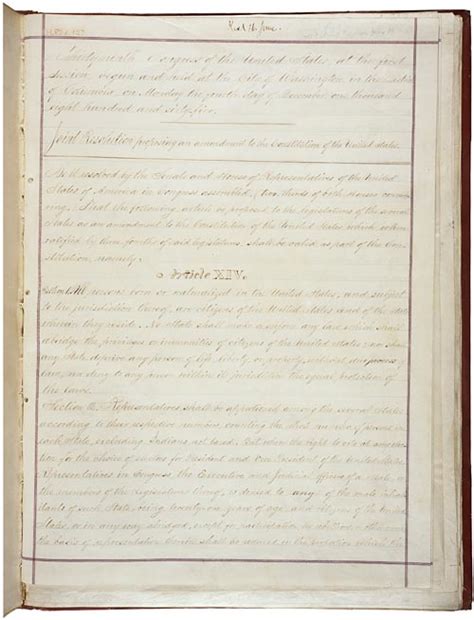 Recd 16 June.
Thirty-ninth Congress of the United States, at the first
Session, begun and held at the City of Washington, in the District
of Columbia, on Monday the fourth day of December, one thousand
eight hundred and sixty-five.
Joint Resolution proposing an amendment to the Constitution of the United States.
Be it resolved by the Senate and House of Representatives of the United
States of America in Congress assembled, (two thirds of both Houses concur-
ring,) That the following article be proposed to the legislatures of the several
States as an amendment to the Constitution of the United States, which, when
ratified by three fourths of said legislatures, shall be valid as part of the Con-
stitution, namely:
Article XIV.
Section 1. All persons born or naturalized in the United States, and subject
to the jurisdiction thereof, are citizens of the United States and of the State
wherein they reside. No State shall make or enforce any law which shall
abridge the privileges or immunities of citizens of the United States; nor shall
any State deprive any person of life, liberty, or property, without due process of
law; nor deny to any person within its jurisdiction the equal protection of
the laws.
Section 2. Representatives shall be apportioned among the several States
according to their respective numbers, counting the whole number of persons in
each State, excluding Indians not taxed. But when the right to vote at any elec-
tion for the choice of electors for President and Vice President of the United States,
Representatives in Congress, the Executive and Judicial officers of a State, or
the members of the Legislature thereof, is denied to any of the male inhabi-
tants of such State, being twenty-one years of age, and citizens of the United
States, or in any way abridged, except for participation in rebellion, or other crime,
the basis of representation therein shall be reduced in the proportion which the